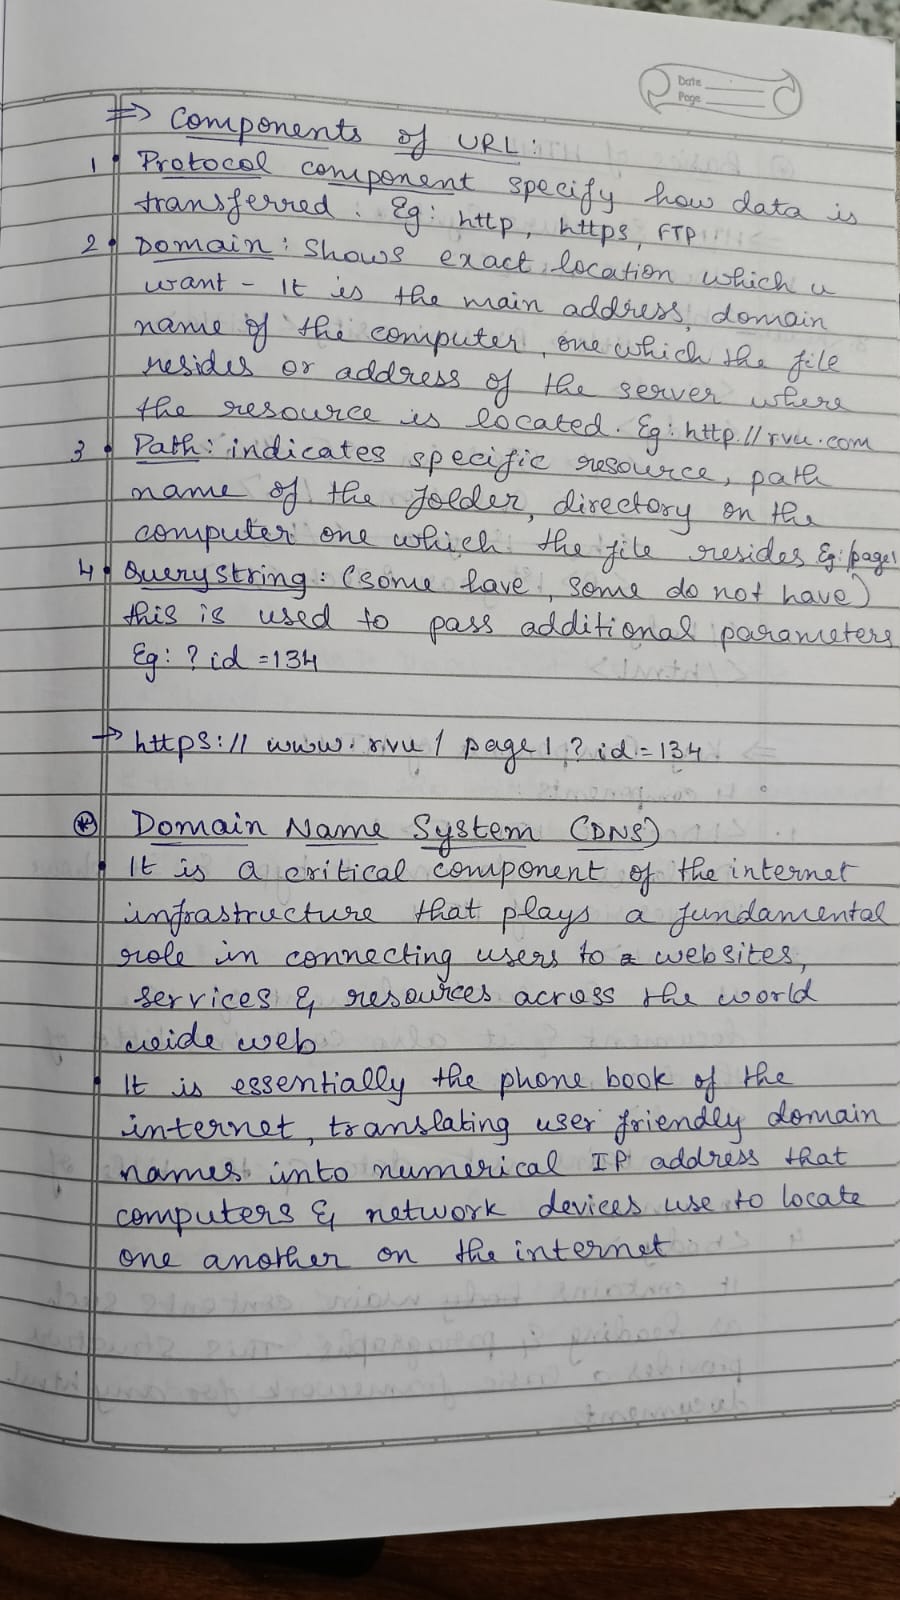 Date
Page
⇒ Components of URL:
1• Protocol component specify how data is
transferred. Eg: http, https, FTP
2• Domain: Shows exact location which u
want - It is the main address, domain
name of the computer, one which the file
resides or address of the server where
the resource is located. Eg: http://rvu.com
3• Path: indicates specific resource, path
name of the folder, directory on the
computer one which the file resides Eg: page1
4• Query String: (some have, some do not have)
this is used to pass additional parameters
Eg: ? id = 134
→ https:// www. rvu / page 1 ? id = 134.
⊛ Domain Name System (DNS)
• It is a critical component of the internet
infrastructure that plays a fundamental
role in connecting users to websites,
services & resources across the world
weide web
• It is essentially the phone book of the
internet, translating user friendly domain
names into numerical IP address that
computers & network devices use to locate
one another on the internet.